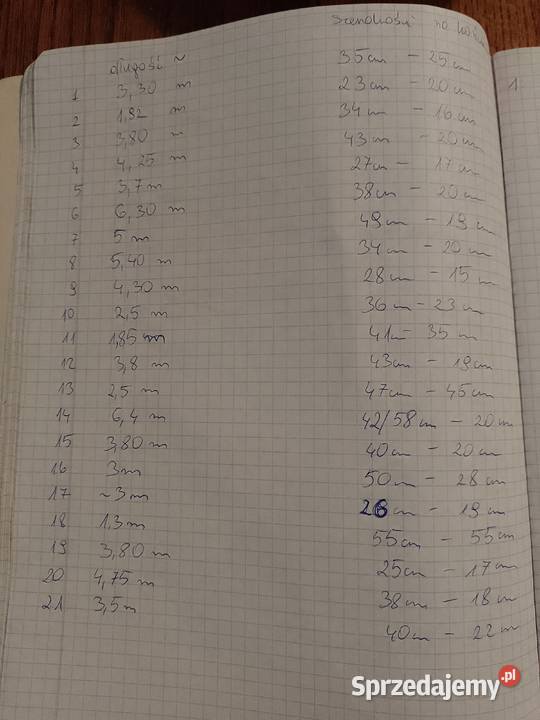 długość ~ szerokość na
1 3,30 m 35cm - 25cm
2 1,92 m 23cm - 20cm
3 3,80 m 34cm - 16cm
4 4,25 m 43cm - 20cm
5 3,7m 27cm - 17cm
6 6,30 m 38cm - 20cm
7 5 m 49cm - 19cm
8 5,40 m 34cm - 20cm
9 4,30 m 28cm - 15cm
10 2,5 m 36cm - 23cm
11 1,85m 41cm 35cm
12 3,8 m 43cm - 19cm
13 2,5 m 47cm - 45cm
14 6,4 m 42/58cm - 20cm
15 3,80 m 40cm - 20cm
16 3m 50cm - 28cm
17 ~3m 26cm - 19cm
18 1,3m 55cm - 55cm
19 3,80 m 25cm - 17cm
20 4,75 m 38cm - 18cm
21 3,5m 40cm - 22cm
1
Sprzedajemy.pl